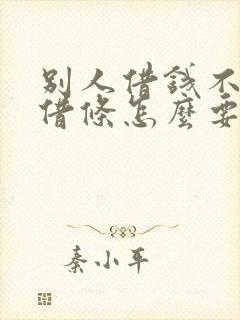 别人借錢不
借條怎麼要
秦小平